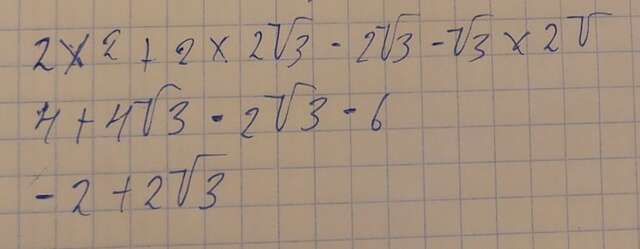 2 × 2 + 2 × 2√3 - 2√3 - √3 × 2√
4 + 4√3 - 2√3 - 6
- 2 + 2√3